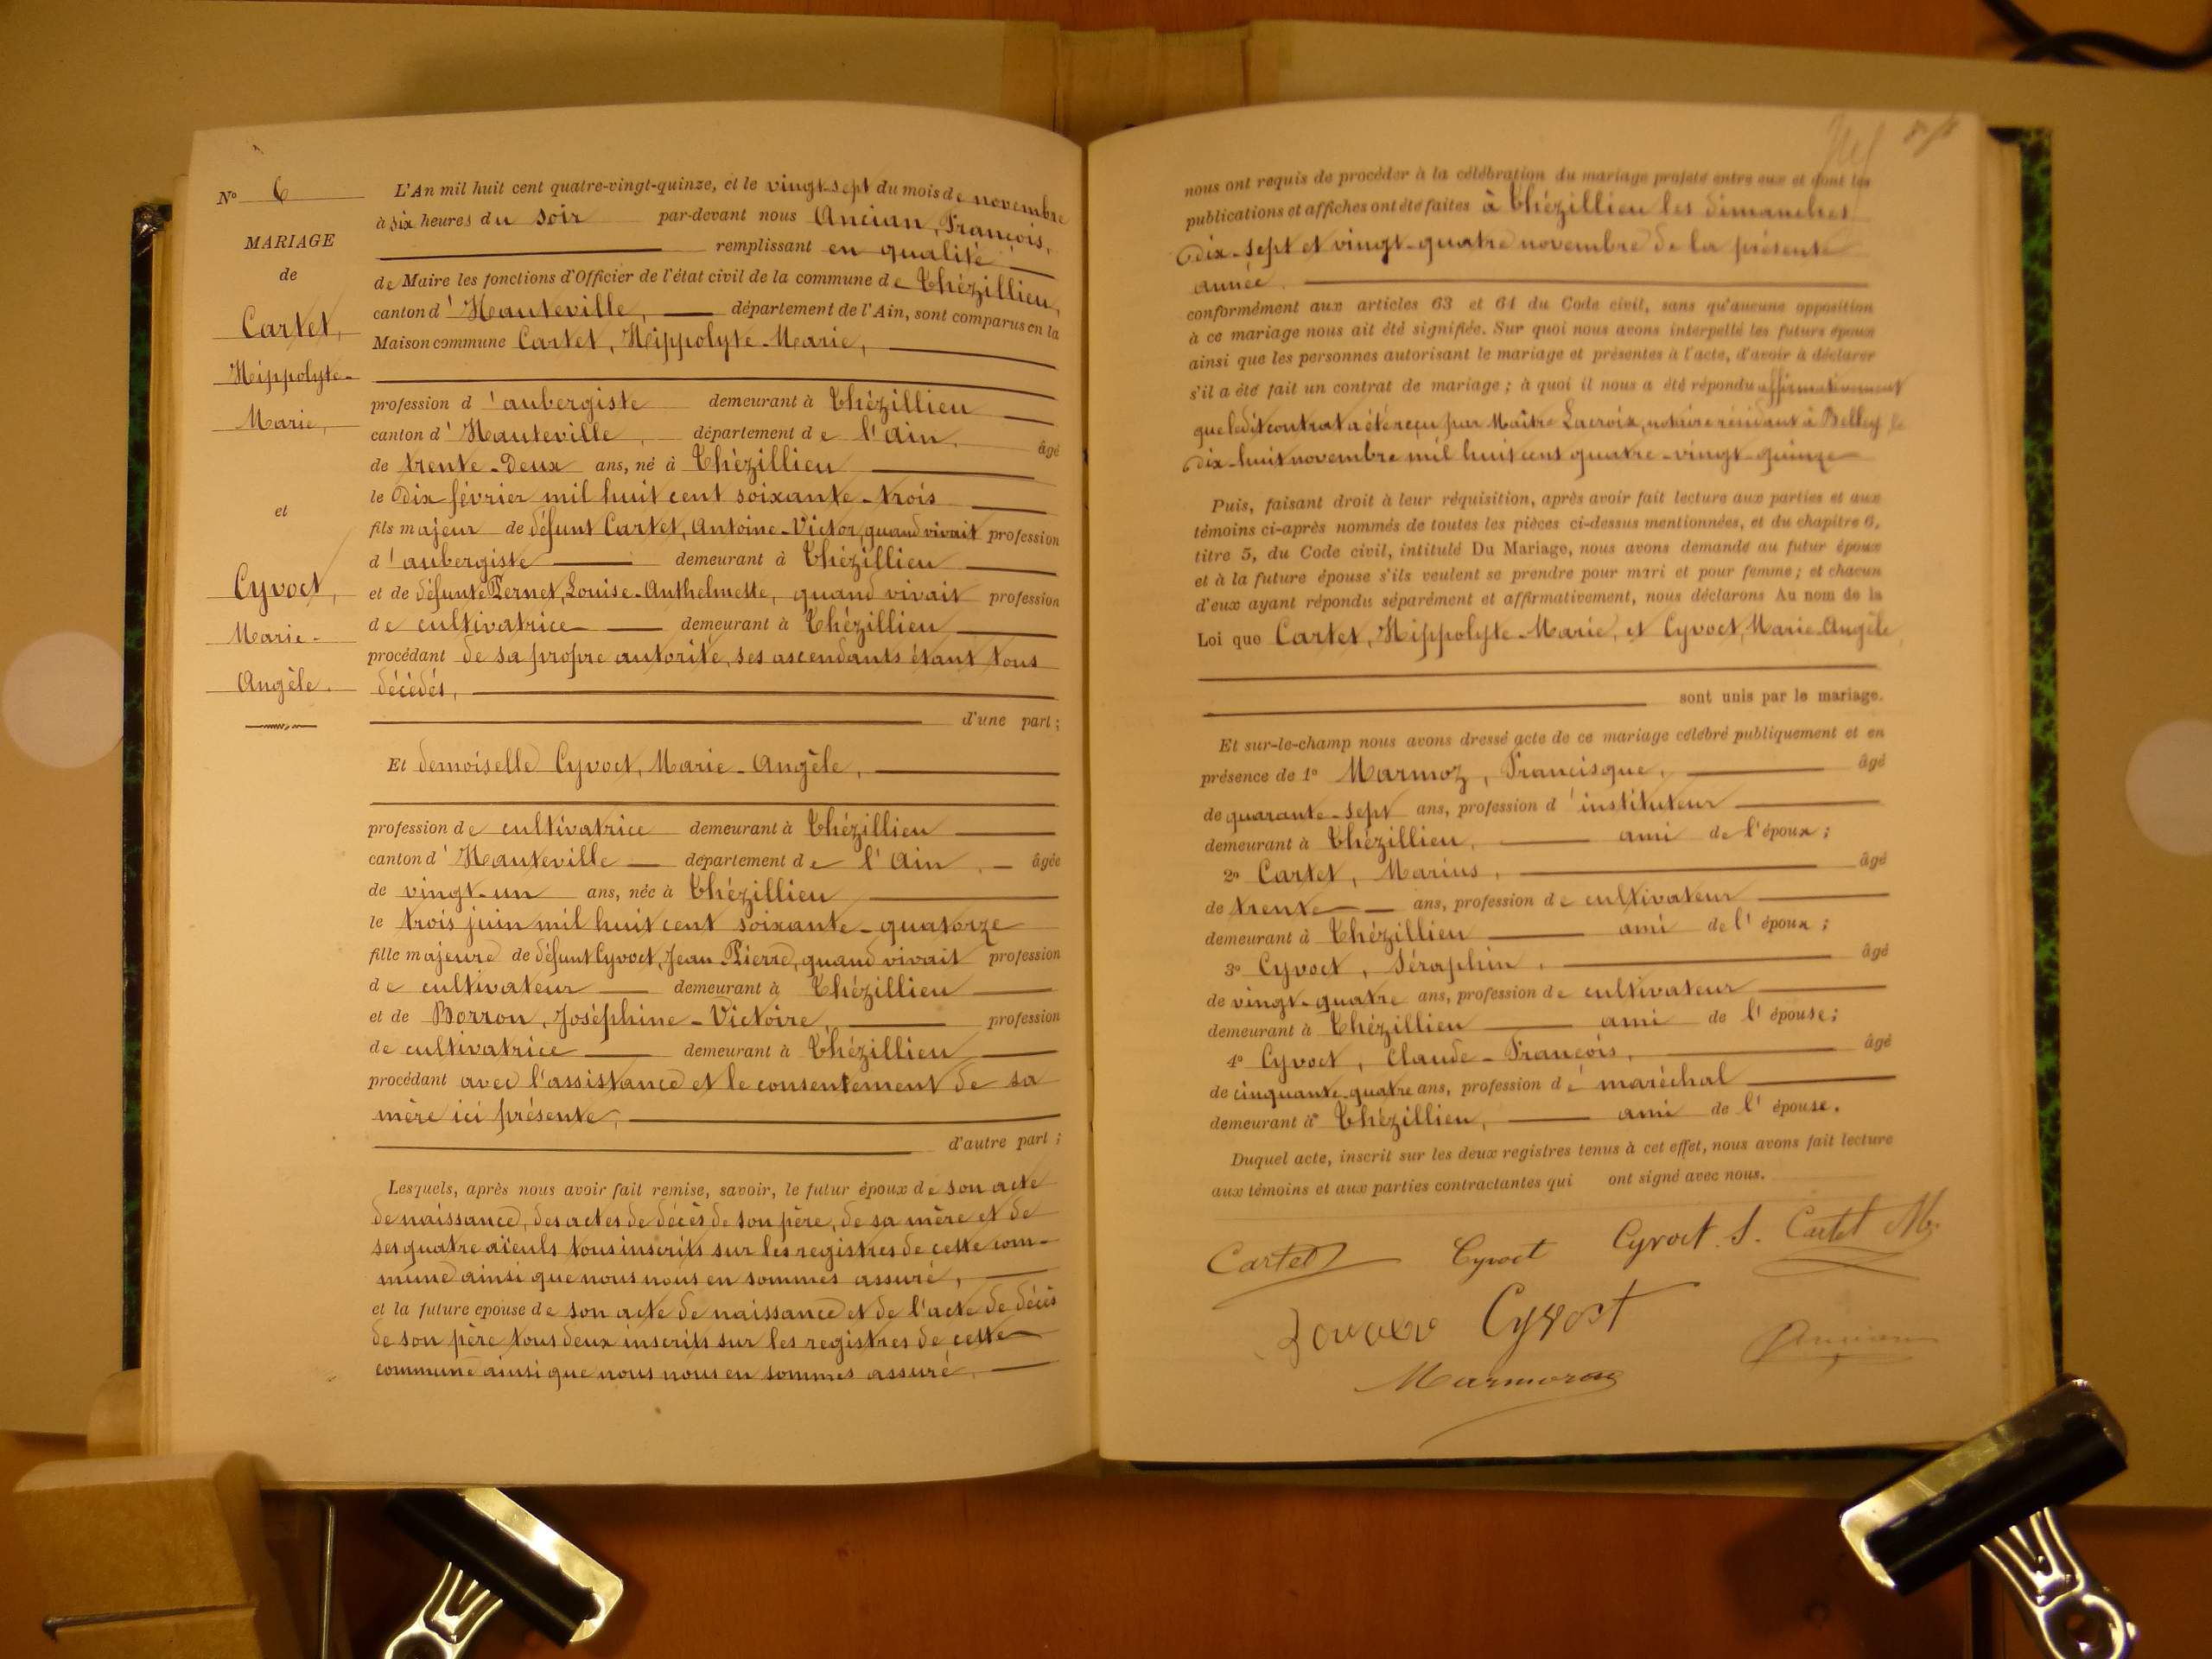 N° 6
MARIAGE
de
Cartet,
Hippolyte-
Marie,
et
Cyvoct,
Marie-
Angèle.
L'An mil huit cent quatre-vingt-quinze, et le vingt-sept du mois de novembre
à six heures du soir par-devant nous Ancian, François,
remplissant en qualité
de Maire les fonctions d'Officier de l'état civil de la commune de Thézillieu,
canton d'Hauteville, département de l'Ain, sont comparus en la
Maison commune Cartet, Hippolyte-Marie,
profession d'aubergiste demeurant à Thézillieu
canton d'Hauteville, département de l'Ain, âgé
de trente-deux ans, né à Thézillieu
le dix février mil huit cent soixante-trois
fils majeur de défunt Cartet, Antoine-Victor, quand vivait profession
d'aubergiste demeurant à Thézillieu
et de défunte Pernet, Louise-Anthelmette, quand vivait profession
de cultivatrice demeurant à Thézillieu
procédant de sa propre autorité, ses ascendants étant tous
décédés,
d'une part;
Et demoiselle Cyvoct, Marie-Angèle,
profession de cultivatrice demeurant à Thézillieu
canton d'Hauteville département de l'Ain, âgée
de vingt-un ans, née à Thézillieu
le trois juin mil huit cent soixante-quatorze
fille majeure de défunt Cyvoct, Jean-Pierre, quand vivait profession
de cultivateur demeurant à Thézillieu
et de Borron, Joséphine-Victoire, profession
de cultivatrice demeurant à Thézillieu
procédant avec l'assistance et le consentement de sa
mère ici présente,
d'autre part;
Lesquels, après nous avoir fait remise, savoir, le futur époux de son acte
de naissance, des actes de décès de son père, de sa mère et de
ses quatre aïeuls tous inscrits sur les registres de cette com-
mune ainsi que nous nous en sommes assuré,
et la future epouse de son acte de naissance et de l'acte de décès
de son père tous deux inscrits sur les registres de cette
commune ainsi que nous nous en sommes assuré
nous ont requis de procéder à la célébration du mariage projeté entre eux et dont les
publications et affiches ont été faites à Thézillieu les dimanches
dix-sept et vingt-quatre novembre de la présente
année.
conformément aux articles 63 et 64 du Code civil, sans qu'aucune opposition
à ce mariage nous ait été signifiée. Sur quoi nous avons interpellé les futurs époux
ainsi que les personnes autorisant le mariage et présentes à l'acte, d'avoir à déclarer
s'il a été fait un contrat de mariage; à quoi il nous a été répondu affirmativement
que ledit contrat a été reçu par Maître Lacroix, notaire résidant à Belley le
dix-huit novembre mil huit cent quatre-vingt-quinze
Puis, faisant droit à leur réquisition, après avoir fait lecture aux parties et aux
témoins ci-après nommés de toutes les pièces ci-dessus mentionnées, et du chapitre 6,
titre 5, du Code civil, intitulé Du Mariage, nous avons demandé au futur époux
et à la future épouse s'ils veulent se prendre pour mari et pour femme; et chacun
d'eux ayant répondu séparément et affirmativement, nous déclarons Au nom de la
Loi que Cartet, Hippolyte-Marie, et Cyvoct, Marie-Angèle,
sont unis par le mariage.
Et sur-le-champ nous avons dressé acte de ce mariage célébré publiquement et en
présence de 1° Marmoz, Francisque, âgé
de quarante-sept ans, profession d'instituteur
demeurant à Thézillieu, ami de l'époux;
2° Cartet, Marius, âgé
de trente ans, profession de cultivateur
demeurant à Thézillieu ami de l'époux;
3° Cyvoct, Séraphin, âgé
de vingt-quatre ans, profession de cultivateur
demeurant à Thézillieu ami de l'épouse;
4° Cyvoct, Claude-François, âgé
de cinquante-quatre ans, profession de maréchal
demeurant à Thézillieu, ami de l'épouse.
Duquel acte, inscrit sur les deux registres tenus à cet effet, nous avons fait lecture
aux témoins et aux parties contractantes qui ont signé avec nous.
Cartet Cyvoct Cyvoct. S. Cartet M.
Cyvoct
Ancian
Marmoz